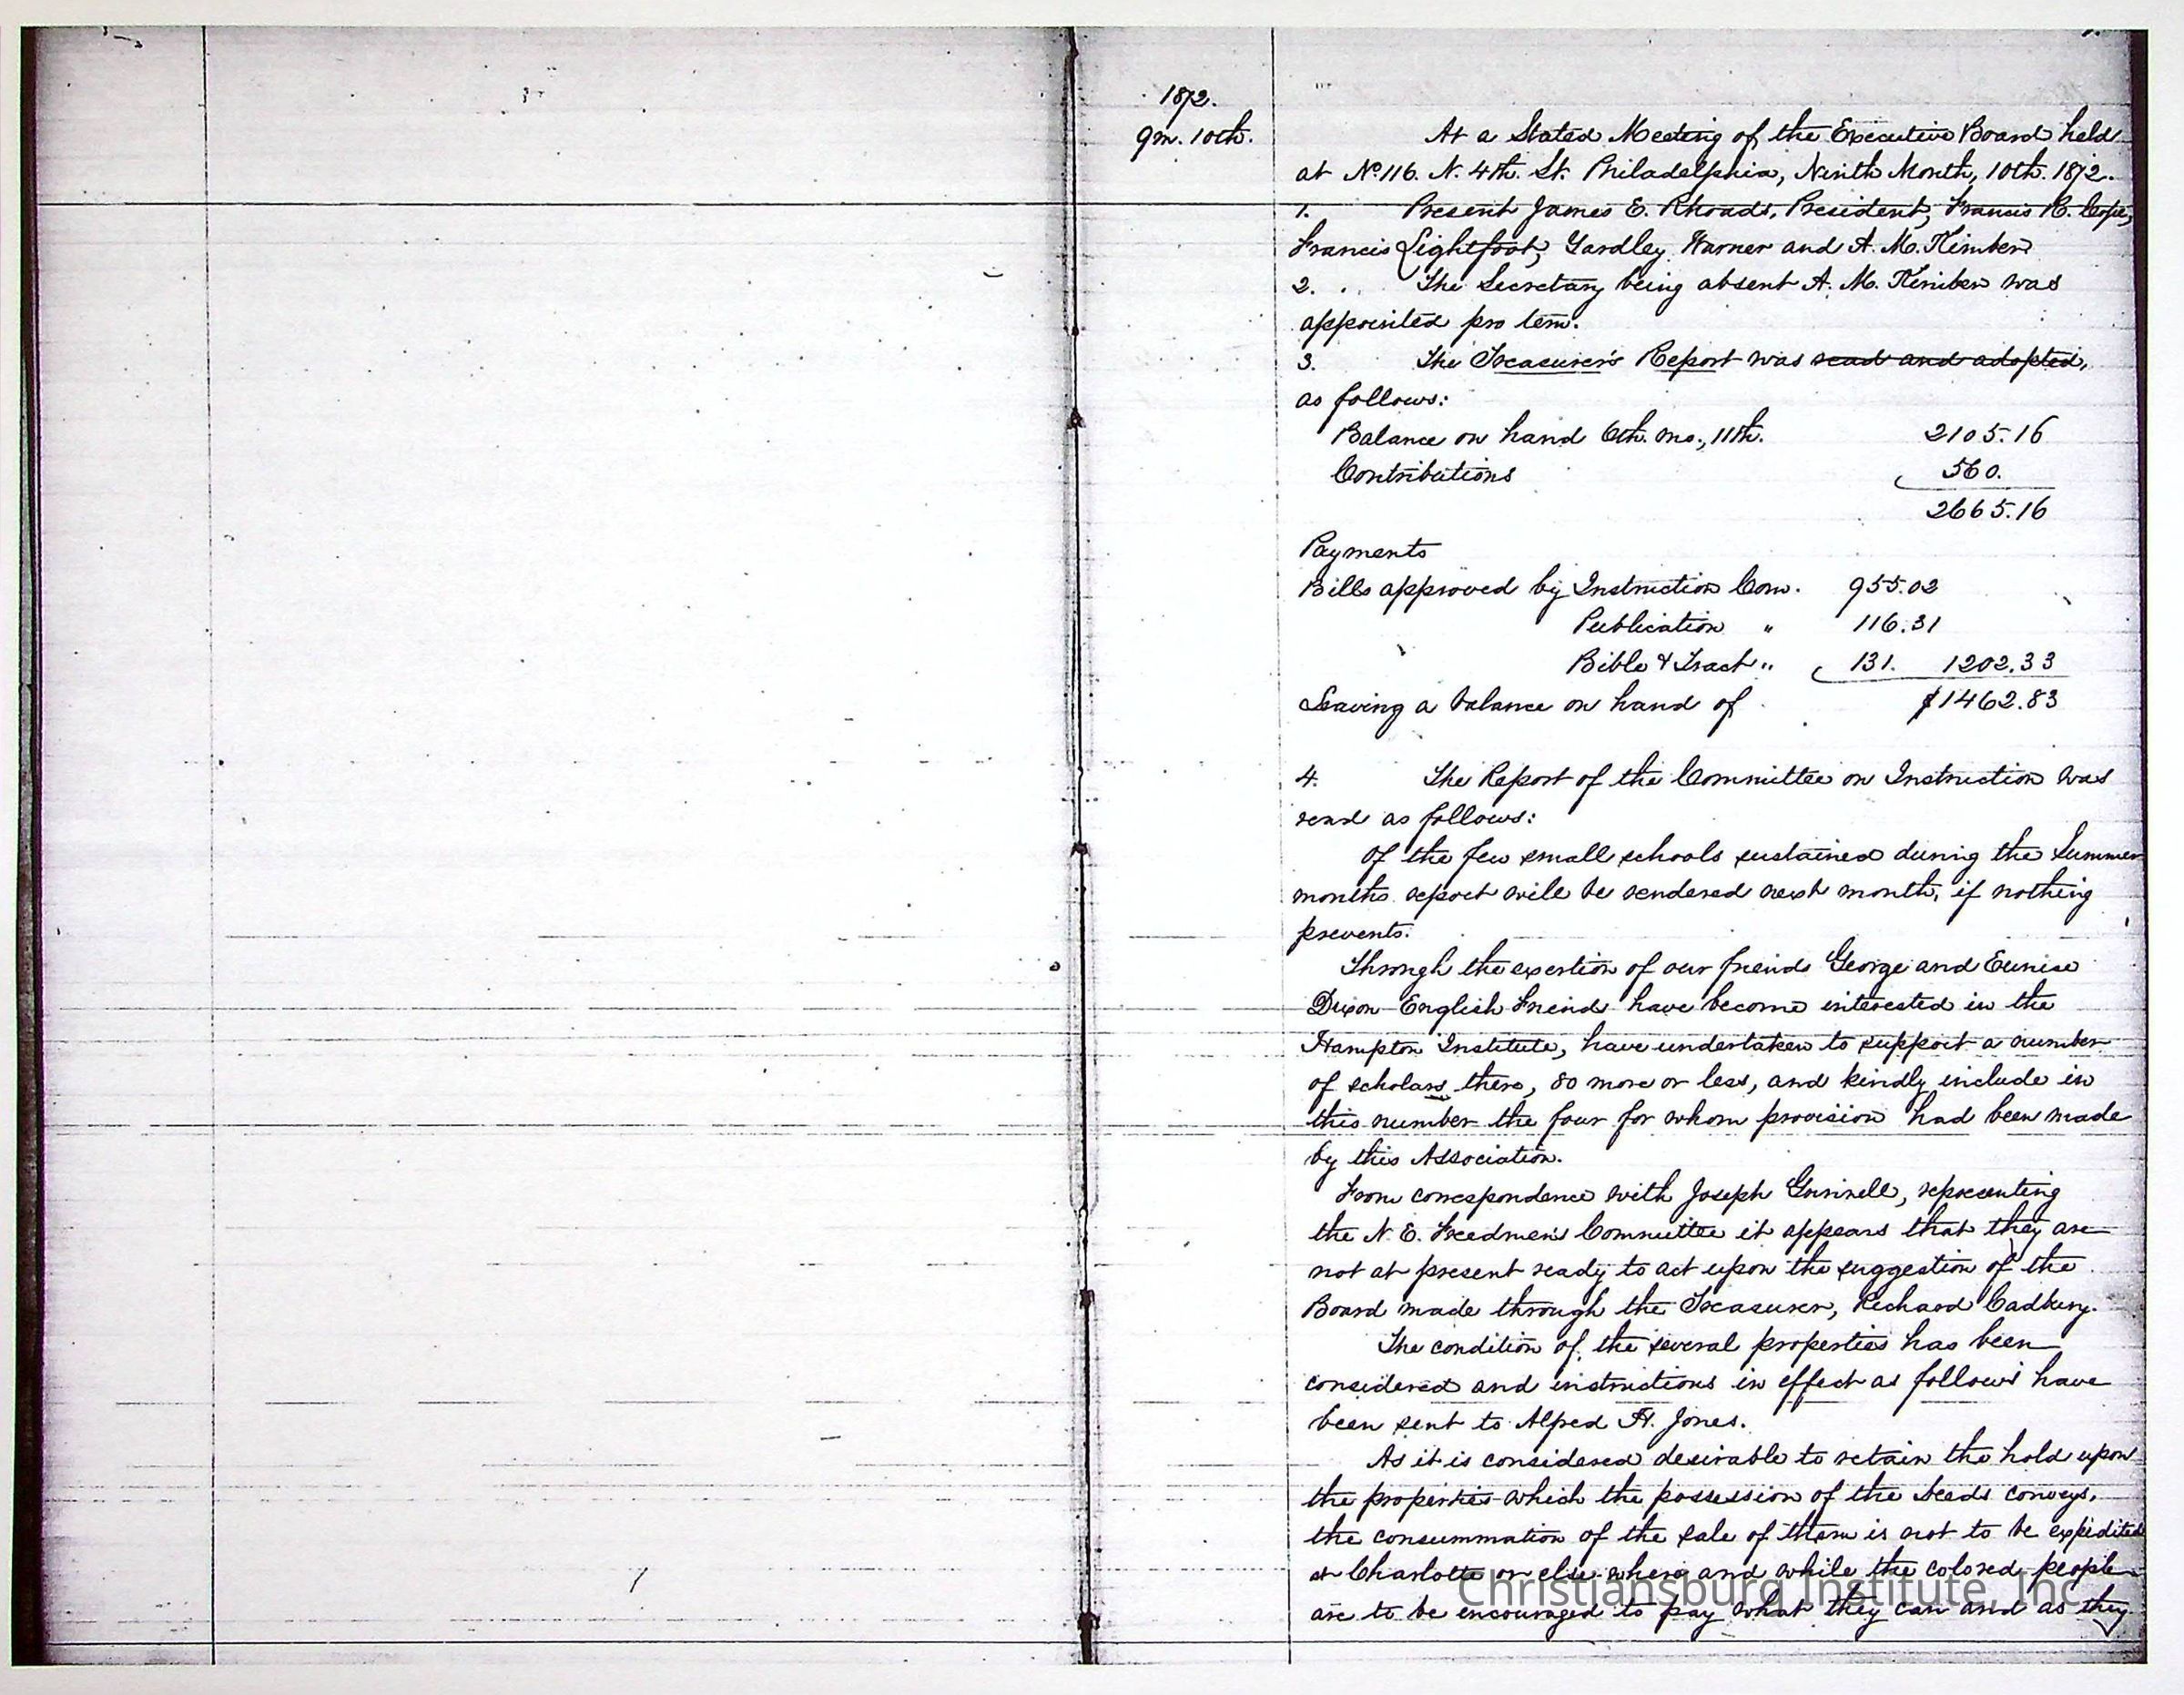 1872.
9m. 10th.
At a Stated Meeting of the Executive Board held
at No. 116. N. 4th. St. Philadelphia, Ninth Month, 10th. 1872.
1. Present James E. Rhoads, President, Francis R. Cope,
Francis Lightfoot, Yardley Warner and A. M. Kimber
2. The Secretary being absent A. M. Kimber was
appointed pro tem.
3. The Treasurer's Report was read and adopted,
as follows:
Balance on hand 6th. mo., 11th. 2105.16
Contributions 560.
2665.16
Payments
Bills approved by Instruction Com. 955.02
Publication " 116.31
Bible & Tract " 131. 1202.33
Leaving a balance on hand of $1462.83
4. The Report of the Committee on Instruction was
read as follows:
Of the few small schools sustained during the Summer
months report will be rendered next month, if nothing
prevents.
Through the exertion of our friends George and Eunice
Dixon English Friends have become interested in the
Hampton Institute, have undertaken to support a number
of scholars there, 80 more or less, and kindly include in
this number the four for whom provision had been made
by this Association.
From correspondence with Joseph Grinnell, representing
the N. E. Freedmen's Committee it appears that they are
not at present ready to act upon the suggestion of the
Board made through the Treasurer, Richard Cadbury.
The condition of the several properties has been
considered and instructions in effect as follows have
been sent to Alfred H. Jones.
As it is considered desirable to retain the hold upon
the properties which the possession of the deeds conveys,
the consummation of the sale of them is not to be expedited
at Charlotte or elsewhere and while the colored people
are to be encouraged to pay what they can and as they
Christiansburg Institute, Inc.